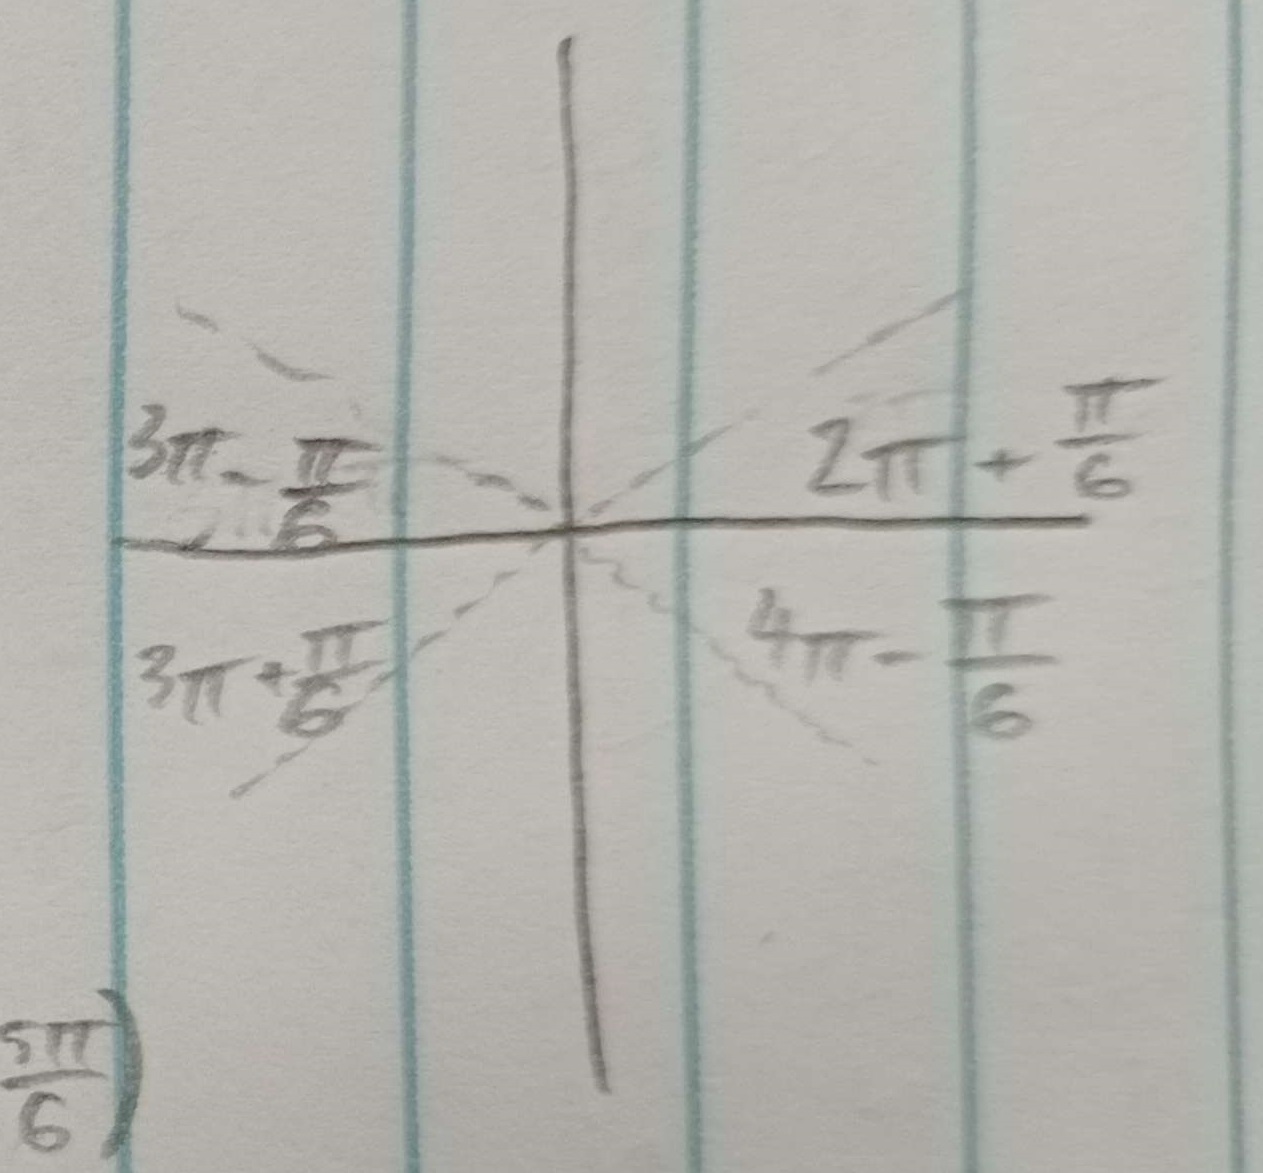 3π - π/6
2π + π/6
3π + π/6
4π - π/6
5π/6)